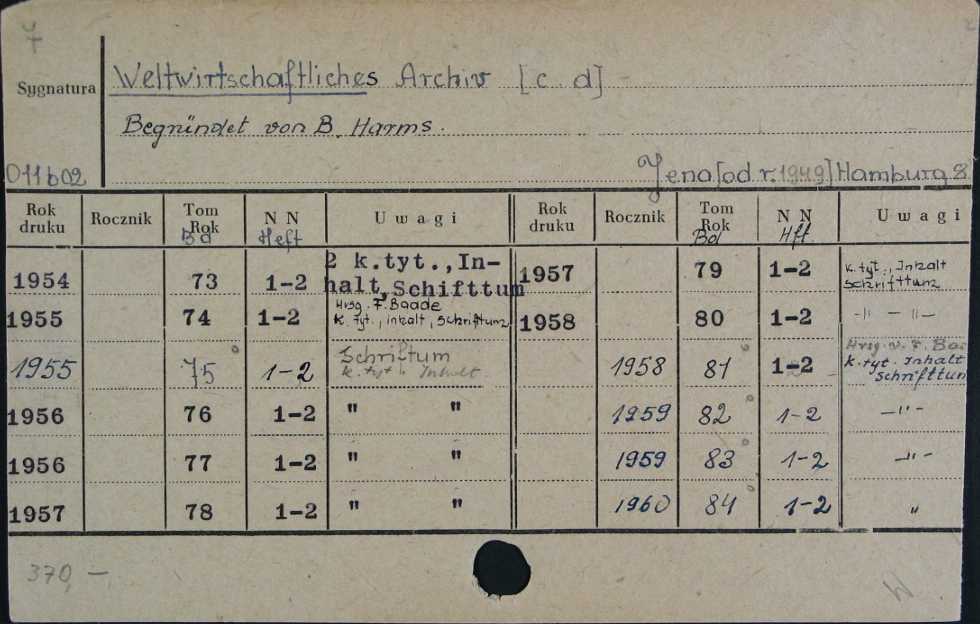 Sygnatura
Weltwirtschaftliches Archiv [c. d]
Begründet von B. Harms.
011602
Jena [od r. 1949] Hamburg 8.
Rok druku Rocznik Tom Rok Bd N N Heft Uwagi Rok druku Rocznik Tom Rok Bd N N Hft Uwagi
1954 73 1-2 2 k.tyt., In-halt, Schifttum 1957 79 1-2 k. tyt., Inhalt Schrifttum
1955 74 1-2 Hrsg. F. Baade k. tyt., inhalt, Schriftum 1958 80 1-2 -"- -"-
1955 75 1-2 Schriftum k. tyt. Inhalt 1958 81 1-2 Hrsg. v. F. Baa k. tyt. Inhalt Schrifttum
1956 76 1-2 " " 1959 82 1-2 -"-
1956 77 1-2 " " 1959 83 1-2 -"-
1957 78 1-2 " " 1960 84 1-2 "
370,-
W